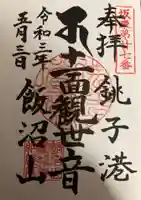 坂東第廿七番
奉拝
銚子港
十一面観世音
飯沼山
令和三年
五月三日